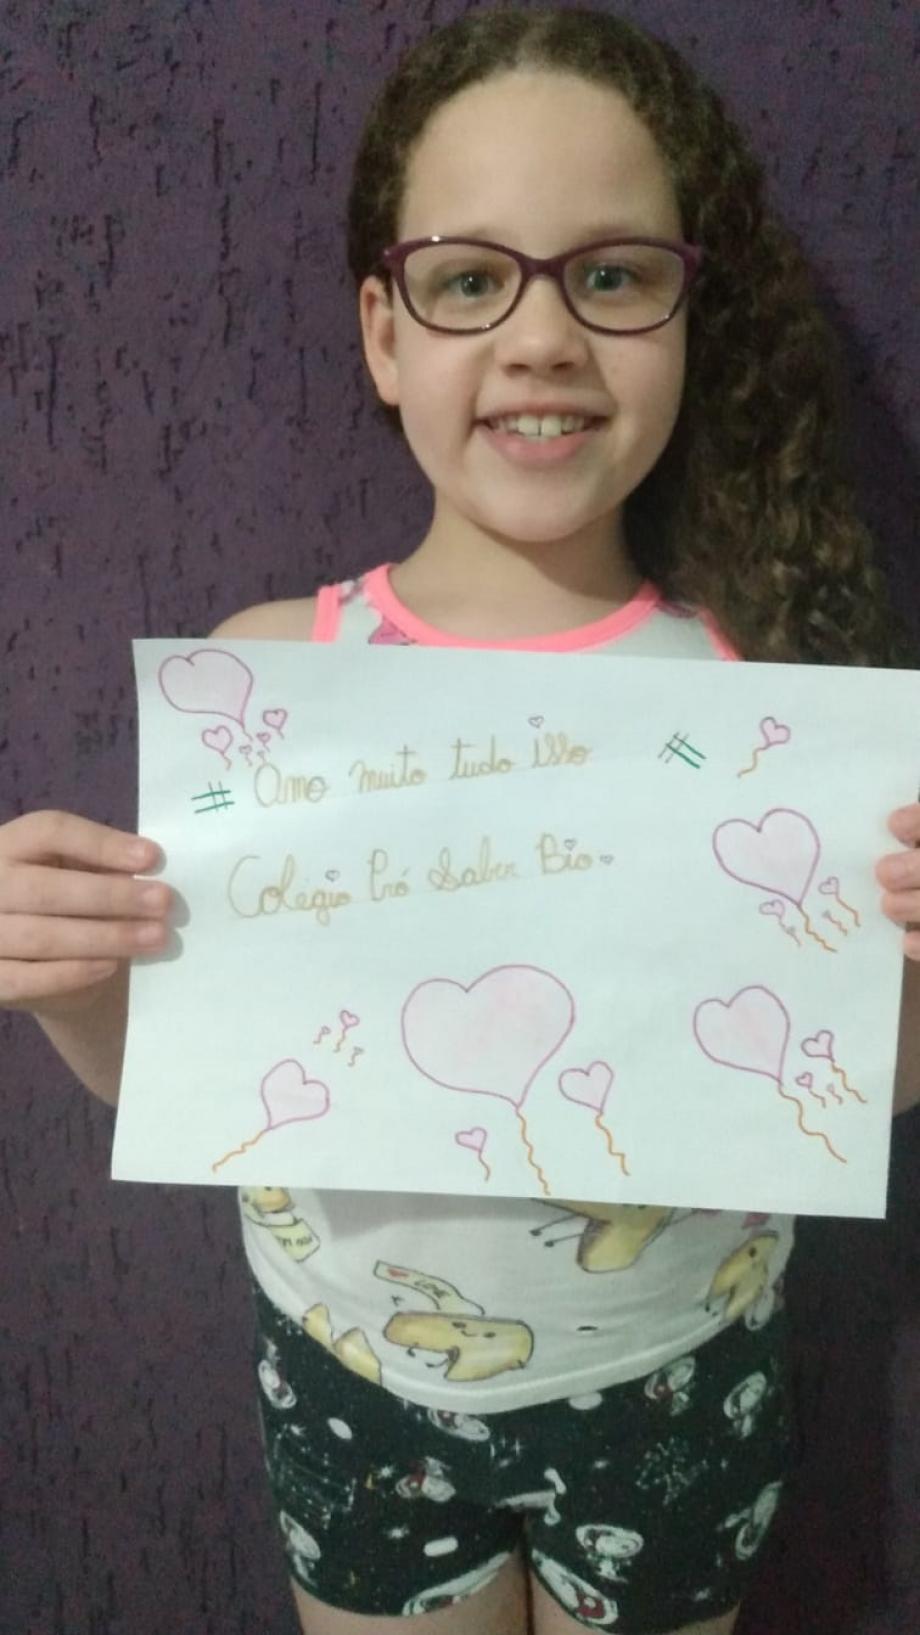 # Amo muito tudo isso #
Colégio Pró Saber Bio.
LOVE